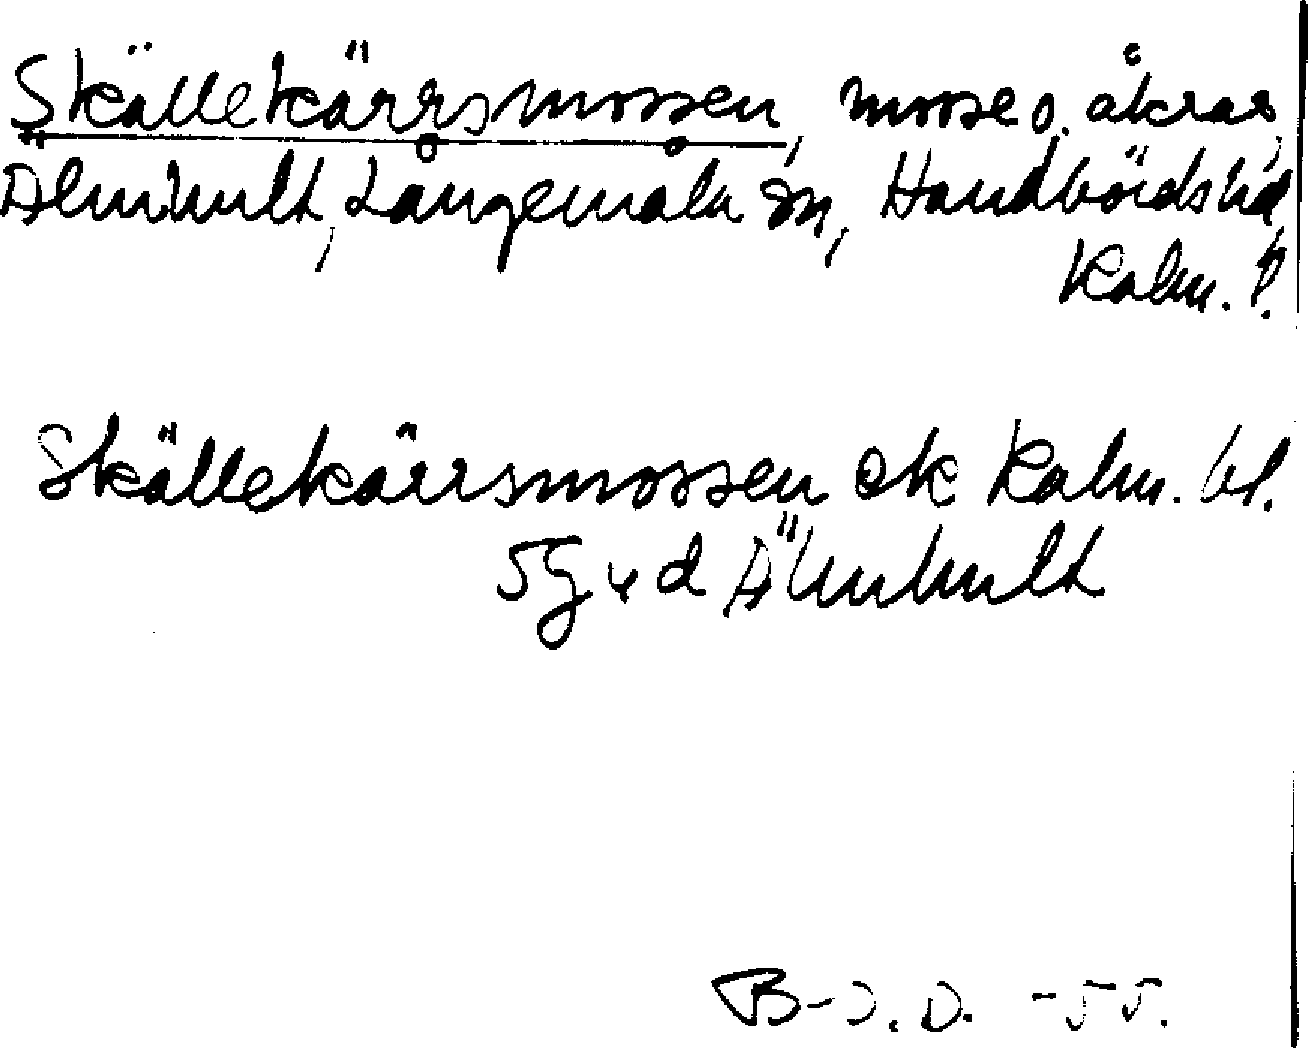 Skällekärrsmossen, mosse o. åkrar,
Älmhult, Långemåla sn, Handbörds hd,
Kalm. l.
Skällekärrsmossen ek Kalm. bl.
5g v d Älmhult
B-J. D. -55.